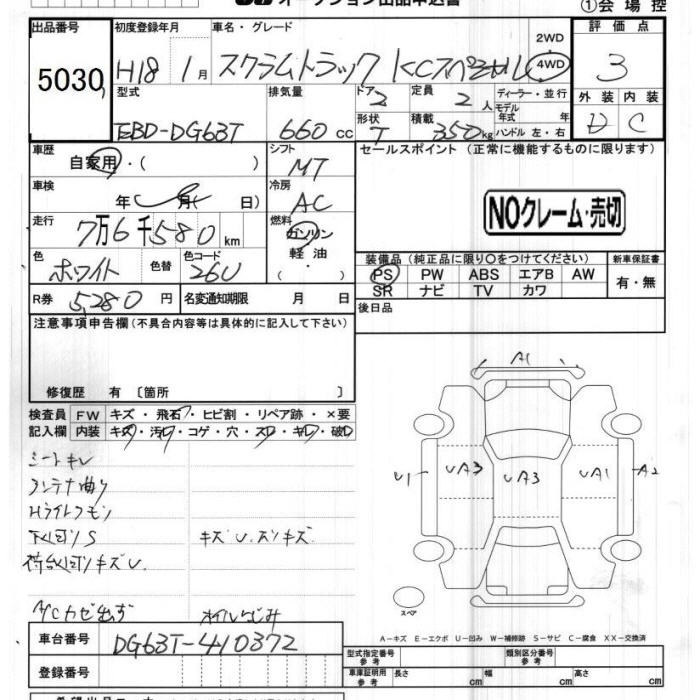 オークション出品申込書
①会場控
出品番号 初度登録年月 車名・グレード 2WD 評価点
5030 H18 1月 スクラムトラック KCスペシャル 4WD 3
型式 排気量 ドア 2 定員 2人 ディーラー・並行 外装 内装
モデル年式 年
EBD-DG63T 660cc 形状 T 積載 350kg ハンドル 左・右 D C
車歴 自家用・( ) シフト MT セールスポイント(正常に機能するものに限ります)
車検 年 月 日) 冷房 AC
NOクレーム・売切
走行 7万6千580km 燃料 ガソリン
軽油
装備品(純正品に限り〇をつけてください) 新車保証書
色 ホワイト 色替 色コード 26U ・( )
PS PW ABS エアB AW 有・無
SR ナビ TV カワ
R券 5,280円 名変通知期限 月 日
後日品
注意事項申告欄(不具合内容等は具体的に記入して下さい)
修復歴 有〔箇所 〕
A1
検査員 FW キズ・飛石・ヒビ割・リペア跡・×要
記入欄 内装 キズ・汚・コゲ・穴・スレ・キレ・破
シートキレ
U1 UA3 UA3 UA1 A2
アンテナ曲り
Hライトクモリ
下回りS キズU.スリキズ
荷台回りキズU.
A/Cカゼ出ず オイルにじみ
スペア
車台番号 DG63T-410372
A-キズ E-エクボ U-凹み W-補修跡 S-サビ C-腐食 XX-交換済
型式指定番号 参考 類別区分番号 参考
登録番号 車庫証明用 参考 長さ cm 幅 cm 高さ cm